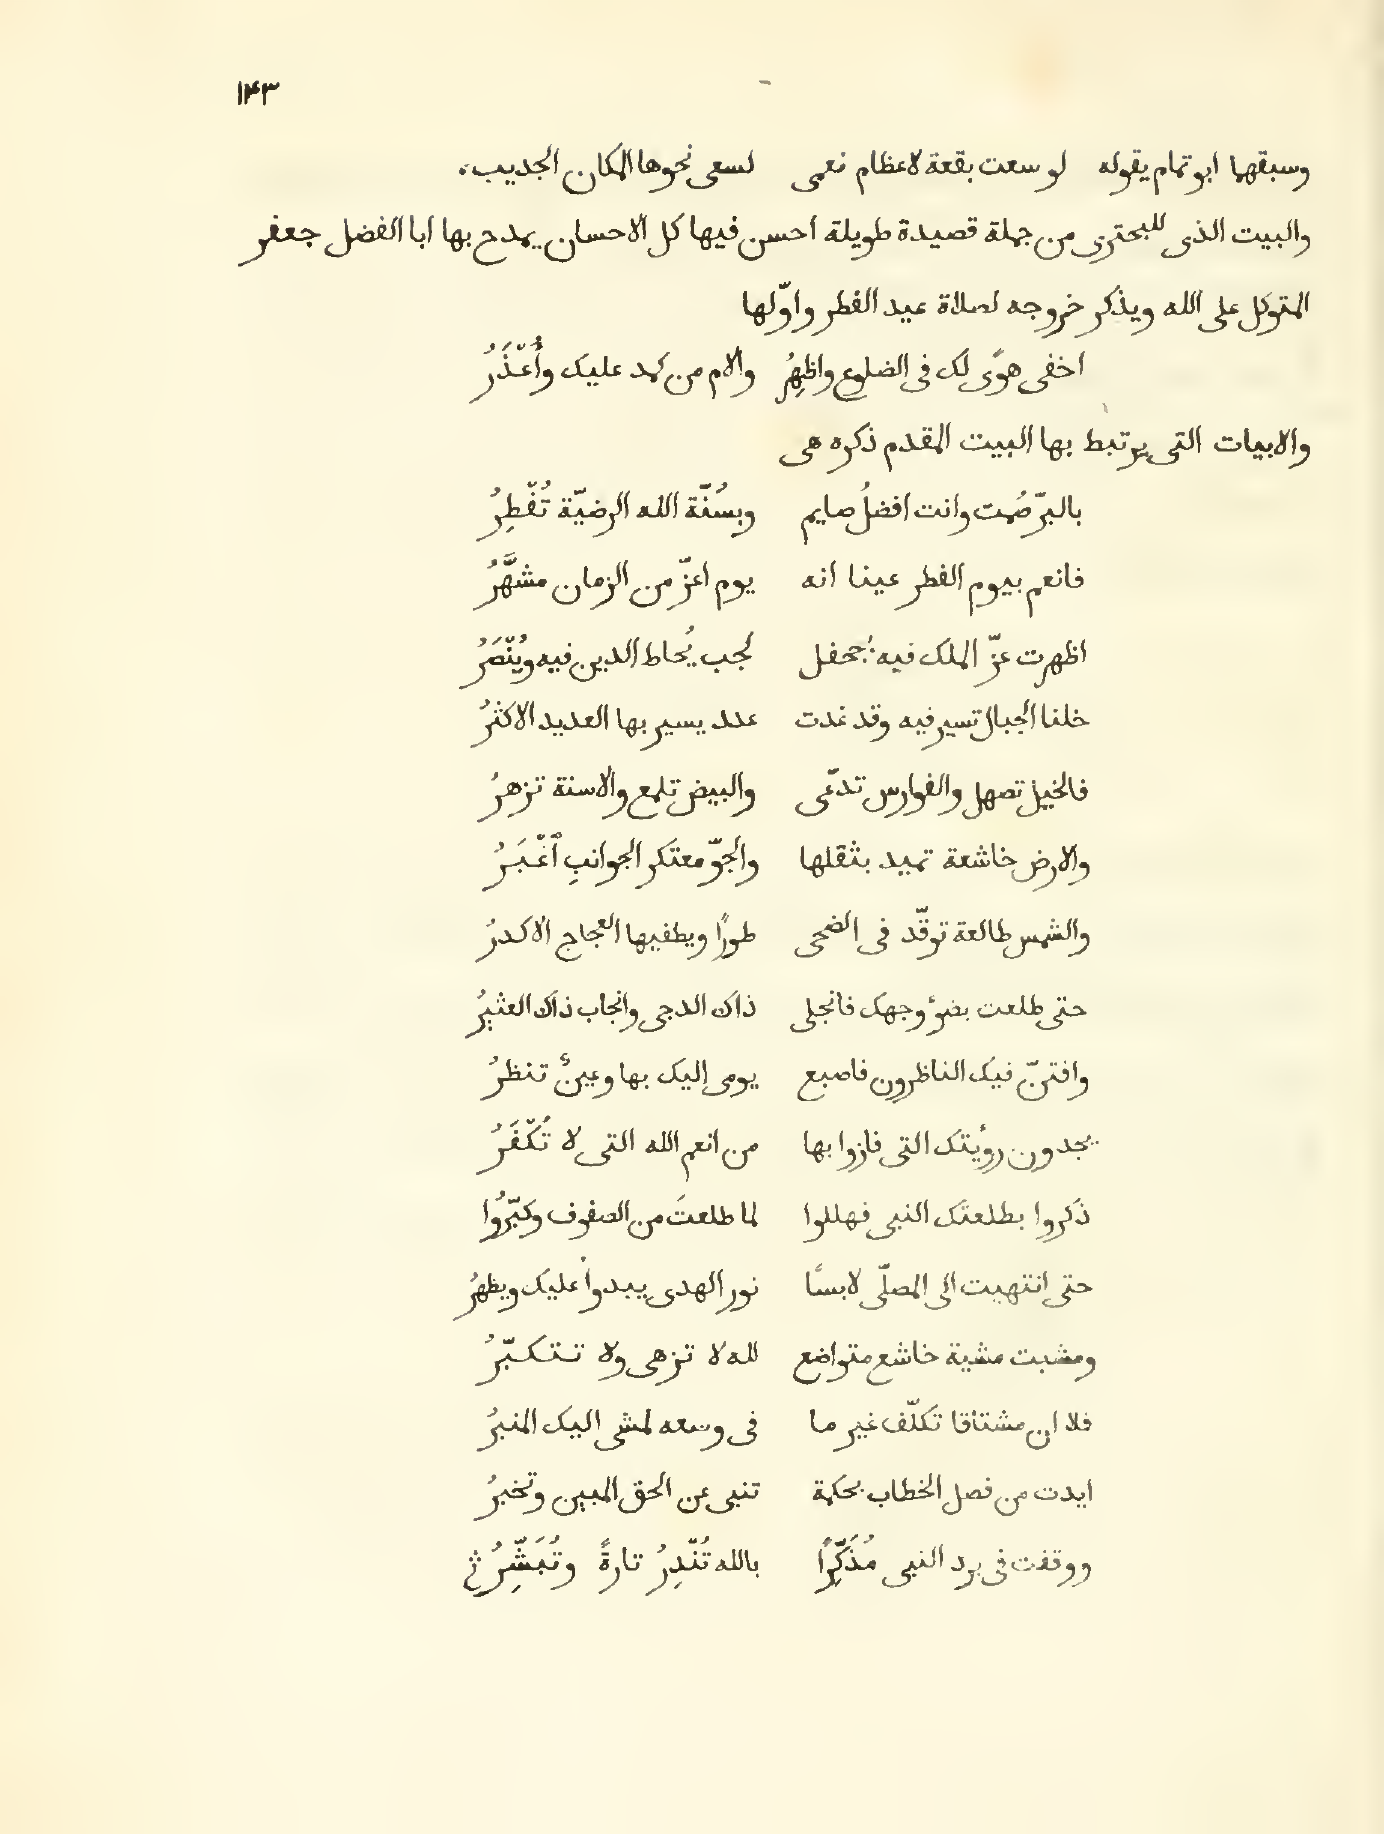 ١٤٣
وسبقهما ابو تمام بقوله لو سعت بقعة لاعظام نعمى لسعى نحوها المكان الجديب.
والبيت الذى للبحترى من جملة قصيدة طويلة احسن فيها كل الاحسان يمدح بها ابا الفضل جعفر
المتوكل على الله ويذكر خروجه لصلاة عيد الفطر واوّلها
اخفى هوًى لك فى الضلوع واظهِرُ والام من كمد عليك وأُعْذَرُ
والابيات التى يرتبط بها البيت المقدم ذكره هى
بالبرّ صُمت وانت افضلُ صايم وبسُنّة الله الرضيّة تُفْطِرُ
فانعم بيوم الفطر عينا انه يوم اعزّ من الزمان مشهَّرُ
اظهرت عزّ الملك فيه بجحفل لجب يُحاط الدين فيه ويُنْصَرُ
خلنا الجبال تسير فيه وقد غدت عدد يسير بها العديد الاكثرُ
فالخيل تصهل والفوارس تدّعى والبيض تلمع والاسنة تزهرُ
والارض خاشعة تميد بثقلها والجوّ معتكر الجوانبِ اَغْبَرُ
والشمس طالعة توقّد فى الضحى طورًا ويطفيها العجاج الاكدرُ
حتى طلعت بضوء وجهك فانجلى ذاك الدجى وانجاب ذاك العثيرُ
وافتنّ فيك الناظرون فاصبع يومى إليك بها وعينٌ تنظرُ
يجدون رؤيتك التى فازوا بها من انعم الله التى لا تُكْفَرُ
ذكروا بطلعتك النبى فهللوا لما طلعتَ من الصفوف وكبّرُوا
حتى انتهيت الى المصلّى لابسًا نور الهدى يبدوا عليك ويظهرُ
ومشيت مشية خاشع متواضع لله لا تزهى ولا تتكبّرُ
فلا ان مشتاقا تكلّف غير ما فى وسعه لمشى اليك المنبرُ
ايدت من فصل الخطاب بحكمة تنبى عن الحق المبين وتخبرُ
ووقفت فى برد النبى مُذَكِّرًا بالله تُنْذِرُ تارةً وتُبَشِّرُ